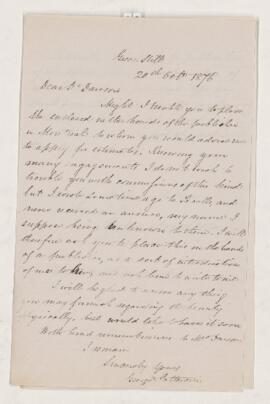 Green Hill
20th Octr 1876
Dear Dr Dawson
Might I trouble you to place
the enclosed in the hands of the publisher
in New York to whom you would advise me
to apply for estimates. Knowing your
many engagements I do not wish to
trouble you with commissions of this kind
but I wrote some time ago to and
never received an answer, my name I
suppose being unknown to them. I will
therefore ask you to place this in the hands
of a publisher, as a sort of introduction
of me to him, and ask him to write to it.
I will be glad to any thing
you may furnish regarding the county
physically, but would like to have it soon
With kind remembrances to Mrs Dawson
I remain
Sincerely Yours
George Patterson